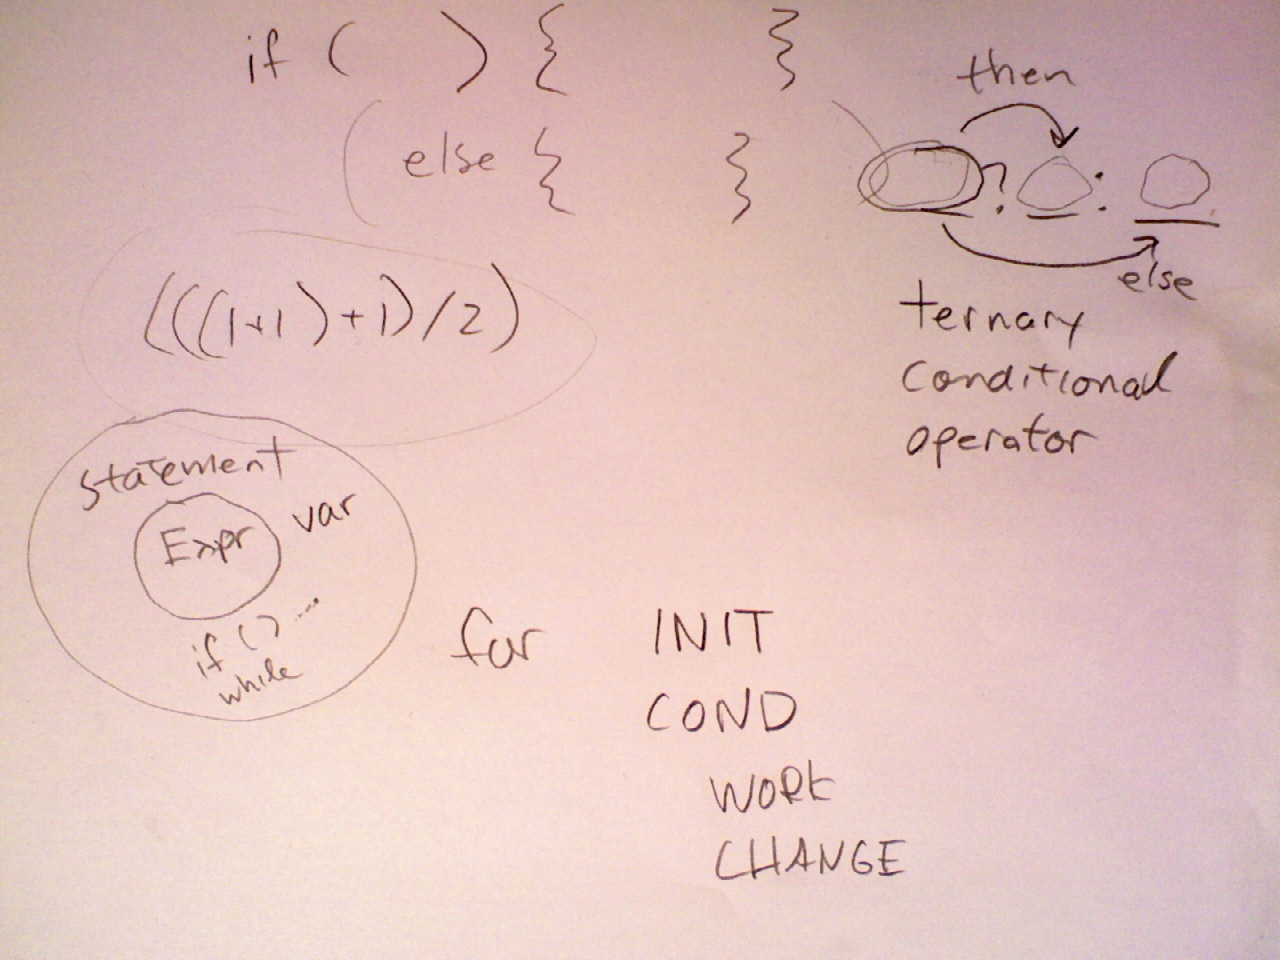 if ( ) { }
(else { } )
then
? :
else
ternary
conditional
operator
(((1+1)+1)/2)
statement
Expr
var
if () ...
while
for
INIT
COND
WORK
CHANGE